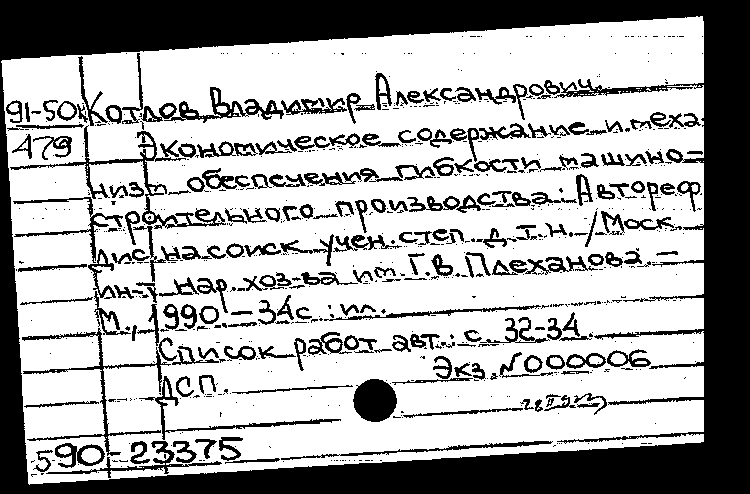 91-50к Котлов, Владимир Александрович.
479 Экономическое содержание и меха-
низм обеспечения гибкости машино-
строительного производства: Автореф
дис. на соиск учен. степ д.т.н. /Моск
ин-т нар. хоз-ва им. Г.В. Плеханова. —
М., 1990. — 34с. : ил.
Список работ авт.: с. 32-34
ДСП. Экз. №000006
590-23375